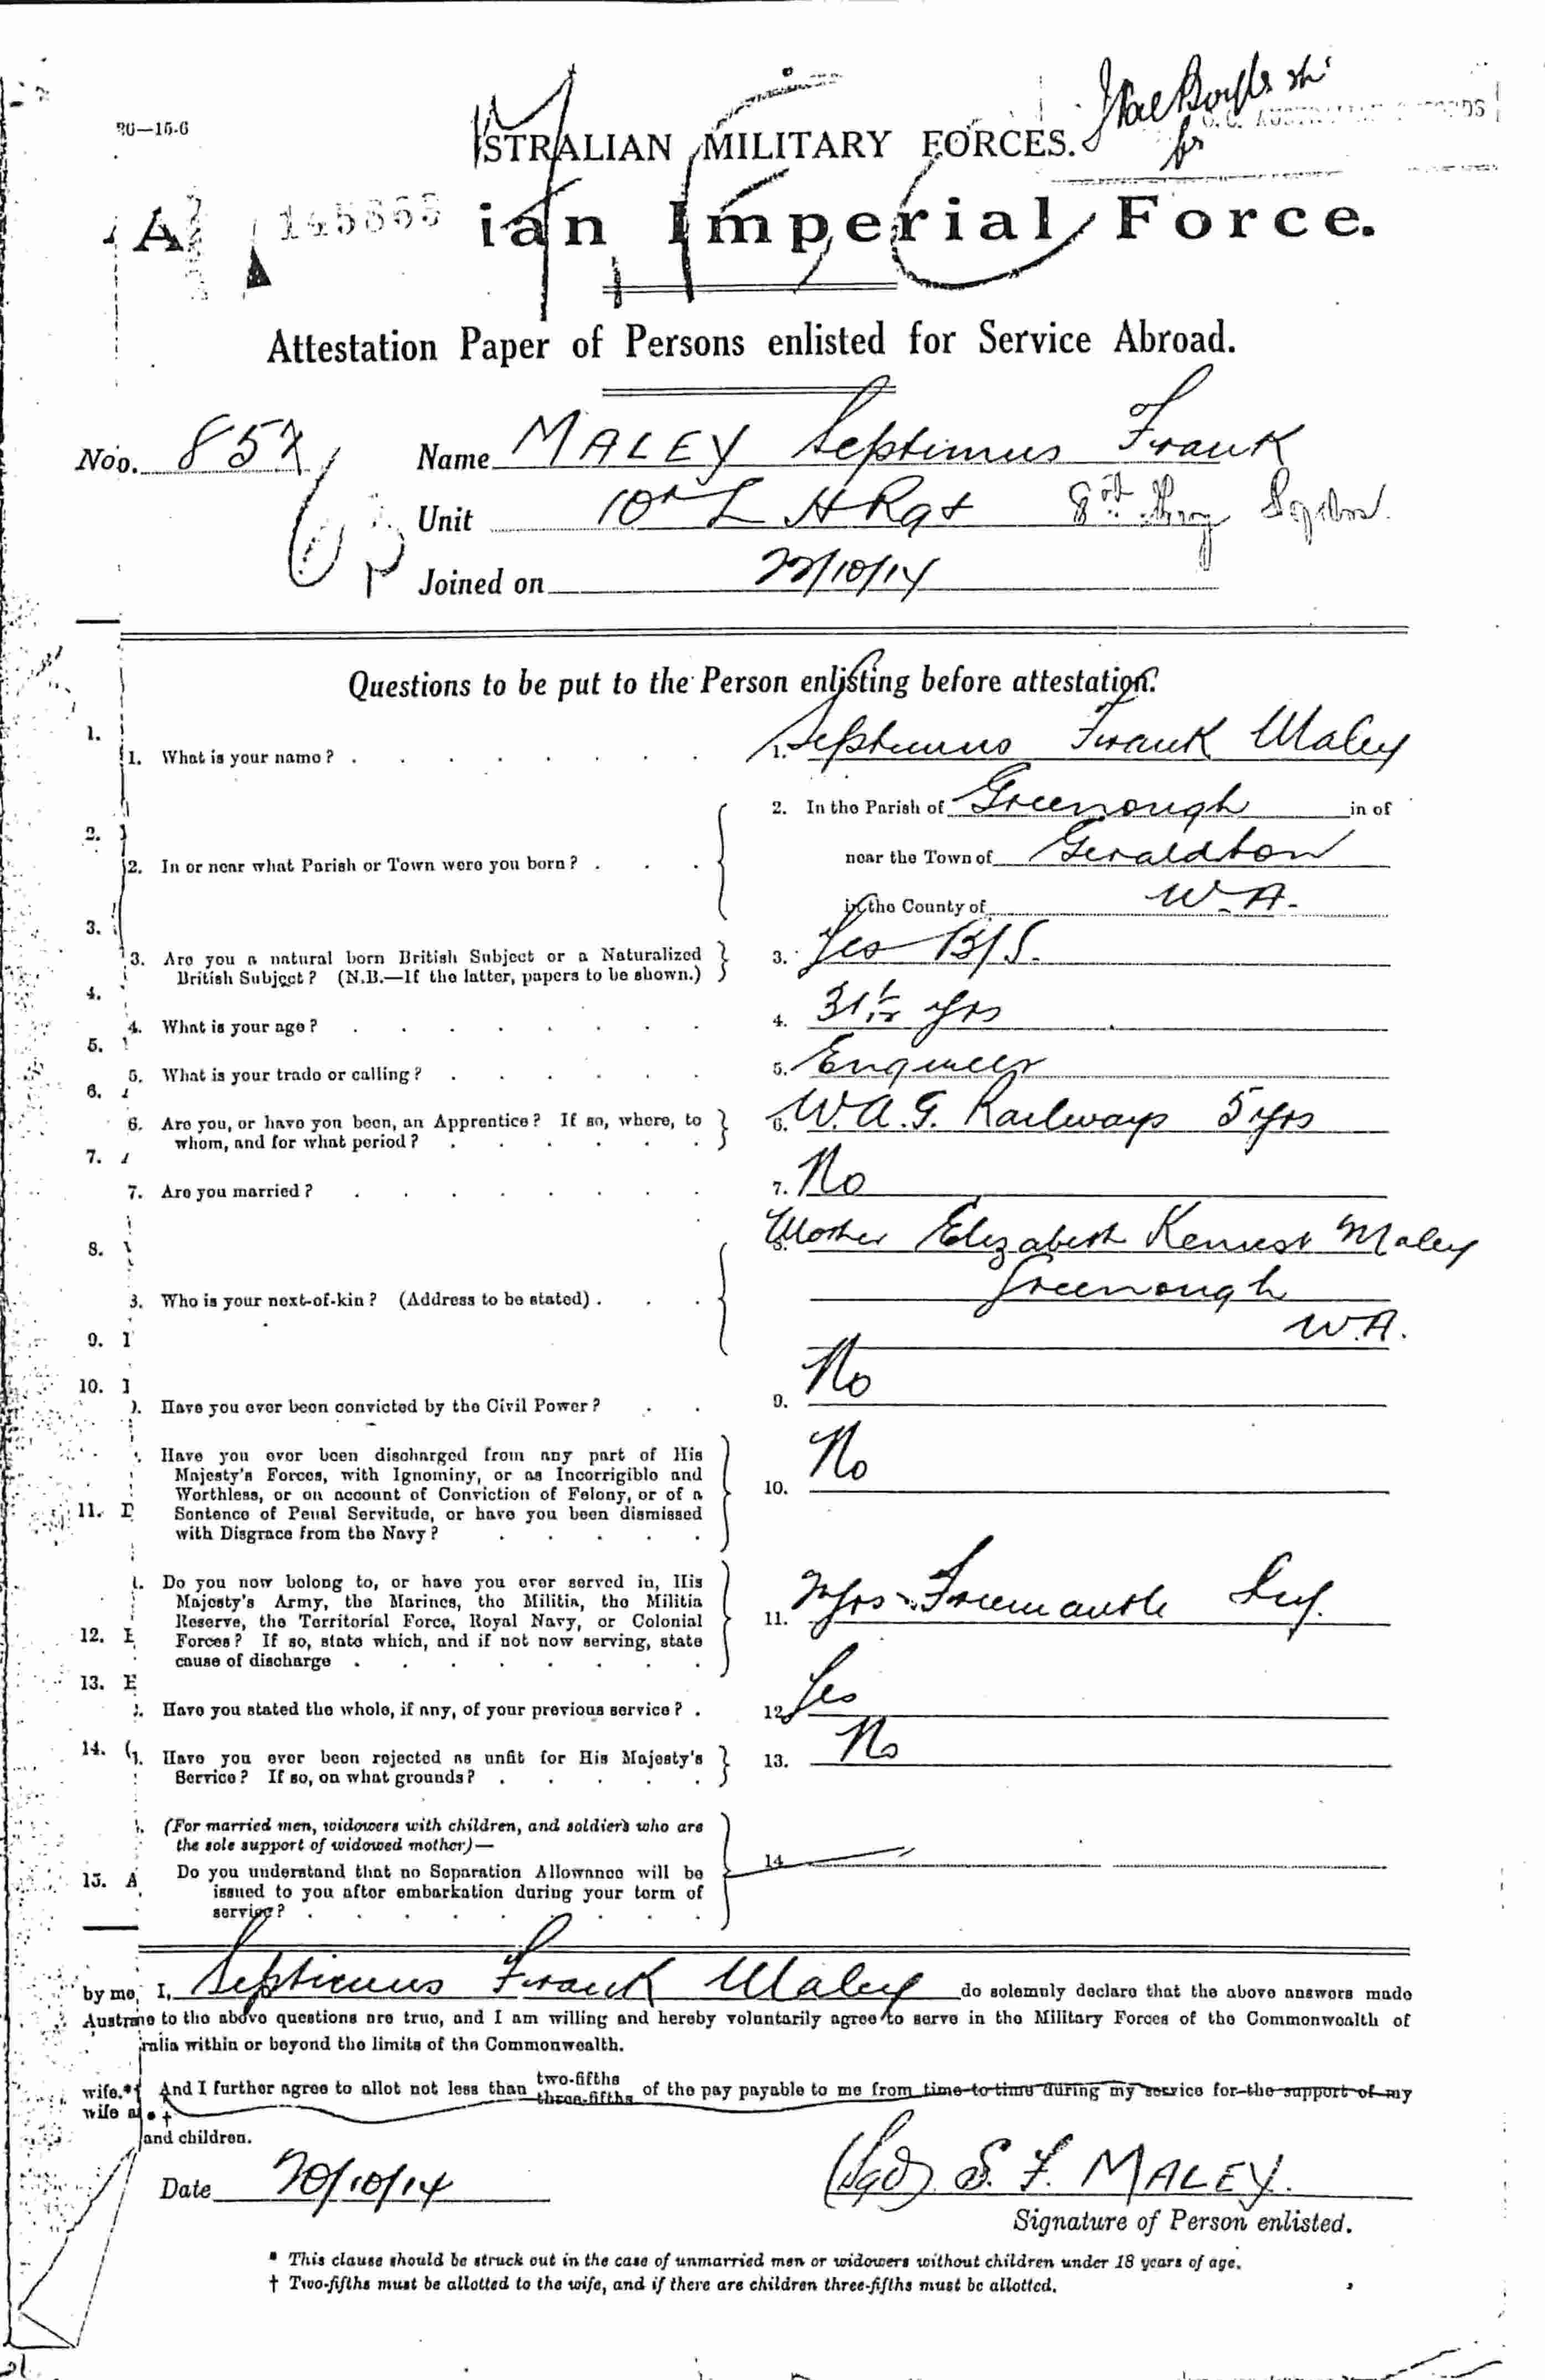 20—15.6
STRALIAN MILITARY FORCES.
A 145868 ian Imperial Force.
Attestation Paper of Persons enlisted for Service Abroad.
No. 857 Name MALEY Septimus Frank
Unit 10th L H Rgt 8th
Joined on 22/10/14
Questions to be put to the Person enlisting before attestation.
1. What is your name? 1. Septimus Frank Maley
2. In or near what Parish or Town were you born?
2. In the Parish of Greenough in of
near the Town of Geraldton
in the County of W.A.
3. Are you a natural born British Subject or a Naturalized
British Subject? (N.B.—If the latter, papers to be shown.) 3. Yes B/S.
4. What is your age? 4. yrs
5. What is your trade or calling? 5. Engineer
6. Are you, or have you been, an Apprentice? If so, where, to
whom, and for what period? 6. W.A.G. Railways 5 yrs
7. Are you married? 7. No
8. Mother Elizabeth Maley
Who is your next-of-kin? (Address to be stated) . Greenough
W.A.
9. Have you ever been convicted by the Civil Power? 9. No
10. Have you ever been discharged from any part of His
Majesty's Forces, with Ignominy, or as Incorrigible and
Worthless, or on account of Conviction of Felony, or of a
Sentence of Penal Servitude, or have you been dismissed
with Disgrace from the Navy? 10. No
11. Do you now belong to, or have you ever served in, His
Majesty's Army, the Marines, the Militia, the Militia
Reserve, the Territorial Force, Royal Navy, or Colonial
Forces? If so, state which, and if not now serving, state
cause of discharge . 11. yrs Freemantle
12. Have you stated the whole, if any, of your previous service? . 12. Yes
13. Have you ever been rejected as unfit for His Majesty's
Service? If so, on what grounds? . 13. No
14. (For married men, widowers with children, and soldiers who are
the sole support of widowed mother)—
Do you understand that no Separation Allowance will be
issued to you after embarkation during your term of
service? . 14.
15. A
by me, I, Septimus Frank Maley do solemnly declare that the above answers made
to the above questions are true, and I am willing and hereby voluntarily agree to serve in the Military Forces of the Commonwealth of
ralia within or beyond the limits of the Commonwealth.
wife.* And I further agree to allot not less than two-fifths three-fifths of the pay payable to me from time to time during my service for the support of my
wife
and children.
Date 20/10/14 (Sgd) S. F. MALEY.
Signature of Person enlisted.
* This clause should be struck out in the case of unmarried men or widowers without children under 18 years of age.
† Two-fifths must be allotted to the wife, and if there are children three-fifths must be allotted.